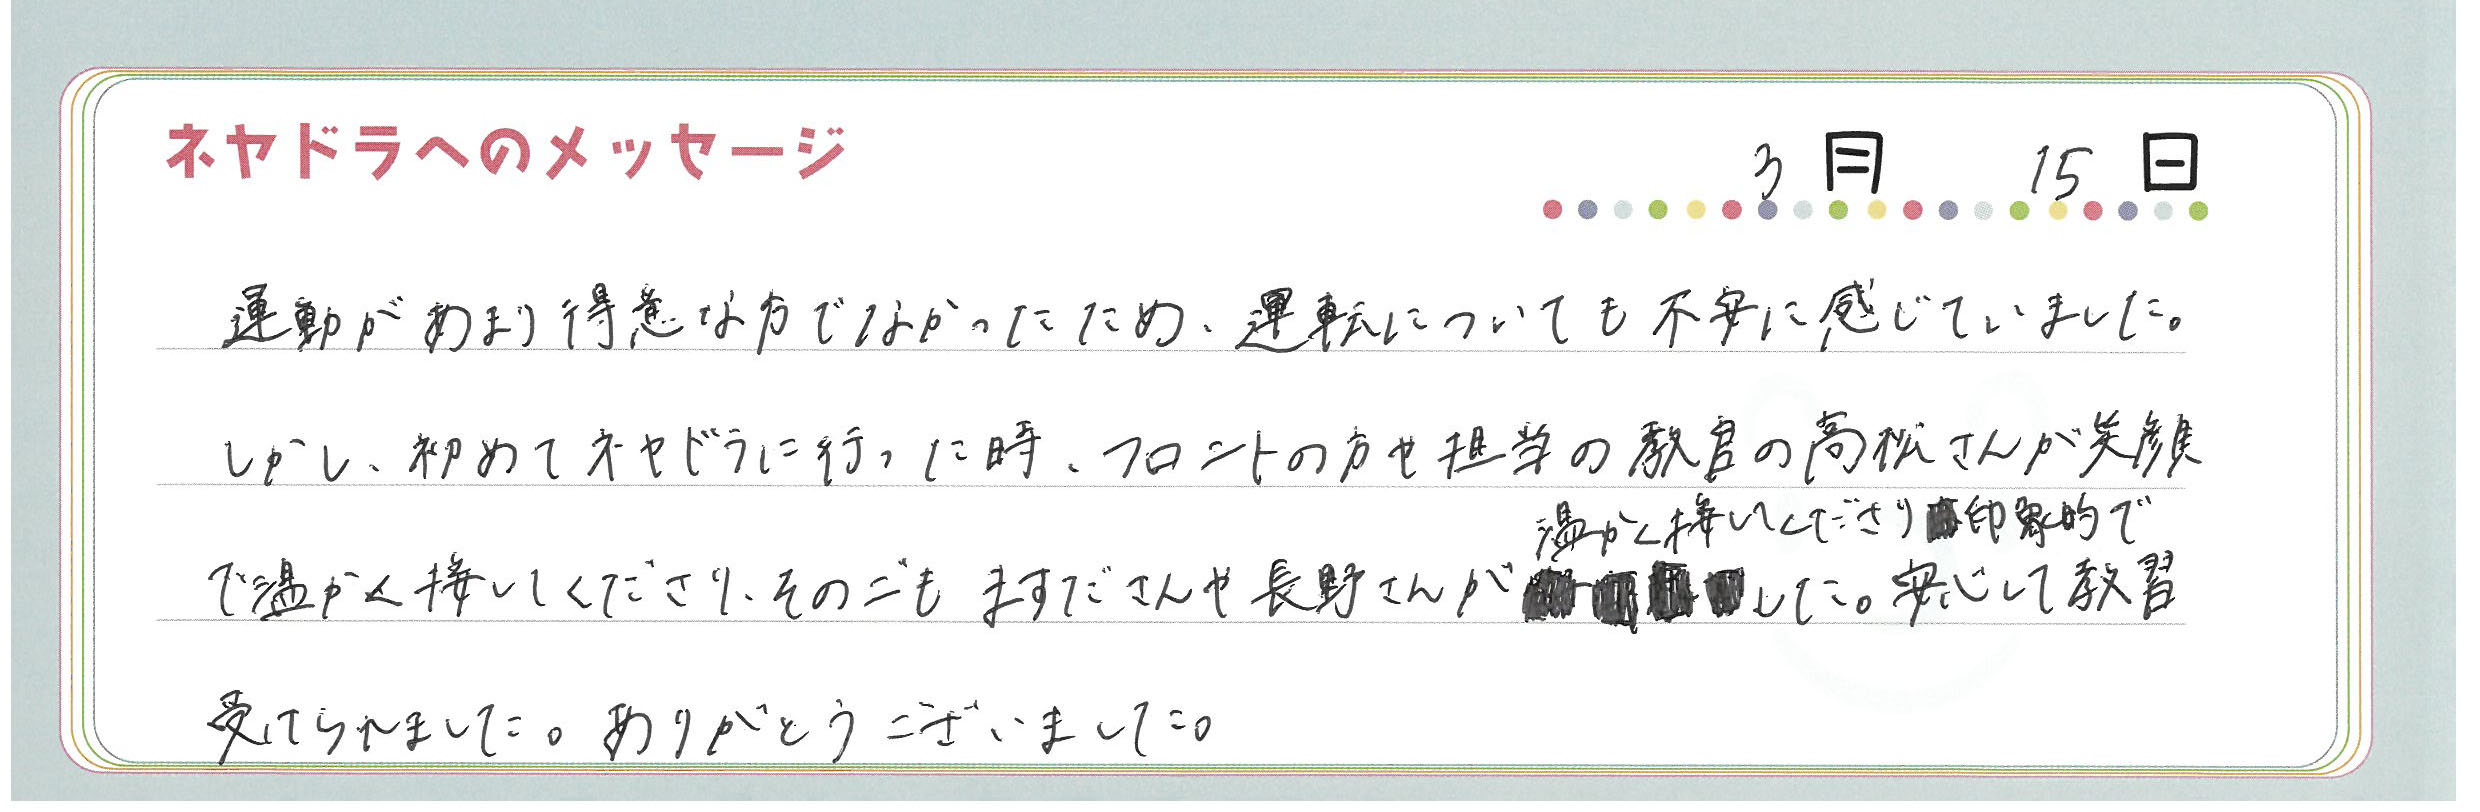 ネヤドラへのメッセージ
3月 15日
運動があまり得意な方でなかったため、運転についても不安に感じていました。
しかし、初めてネヤドラに行った時、フロントの方や担当の教官の高松さんが笑顔
温かく接してくださり印象的で
で温かく接してくださり、そのごもますださんや長野さんがした。安心して教習
受けられました。ありがとうございました。